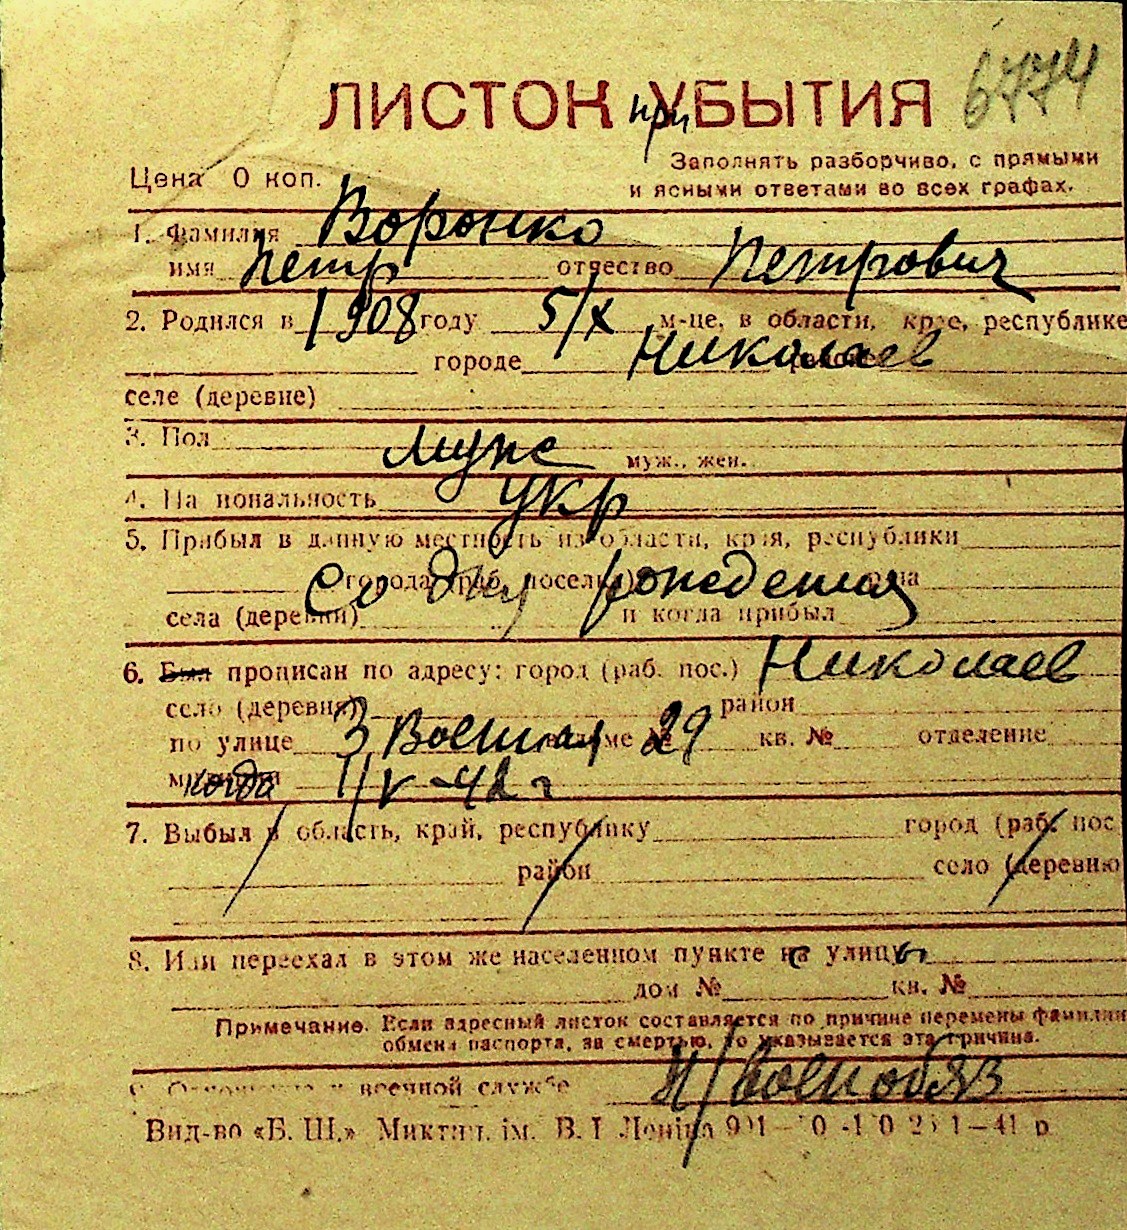 6774
ЛИСТОК при УБЫТИЯ
Заполнять разборчиво, с прямыми
Цена 0 коп.
и ясными ответами во всех графах.
1. Фамилия Воронко
имя Петр отчество Петрович
2. Родился в 1908 году 5/X м-це, в области, крае, республике
городе Николаев районе
селе (деревне)
3. Пол муж муж., жен.
4. Национальность укр
5. Прибыл в данную местность из области, края, республики
города (раб. поселка) со дня рождения
села (деревни) и когда прибыл
6. Был прописан по адресу: город (раб. пос.) Николаев
село (деревня) район
по улице 3 Военная в доме № 29 кв. № отделение
когда 1/V-42 г
7. Выбыл в область, край, республику город (раб. пос
район село (деревню
8. Или переехал в этом же населенном пункте с улицы
дом № кв. №
Примечание. Если адресный листок составляется по причине перемены фамилии
обмена паспорта, за смертью, то указывается эта причина.
военной службе н/военнобяз
Вид-во «Б. Ш.» Микт ім. В. І Леніна